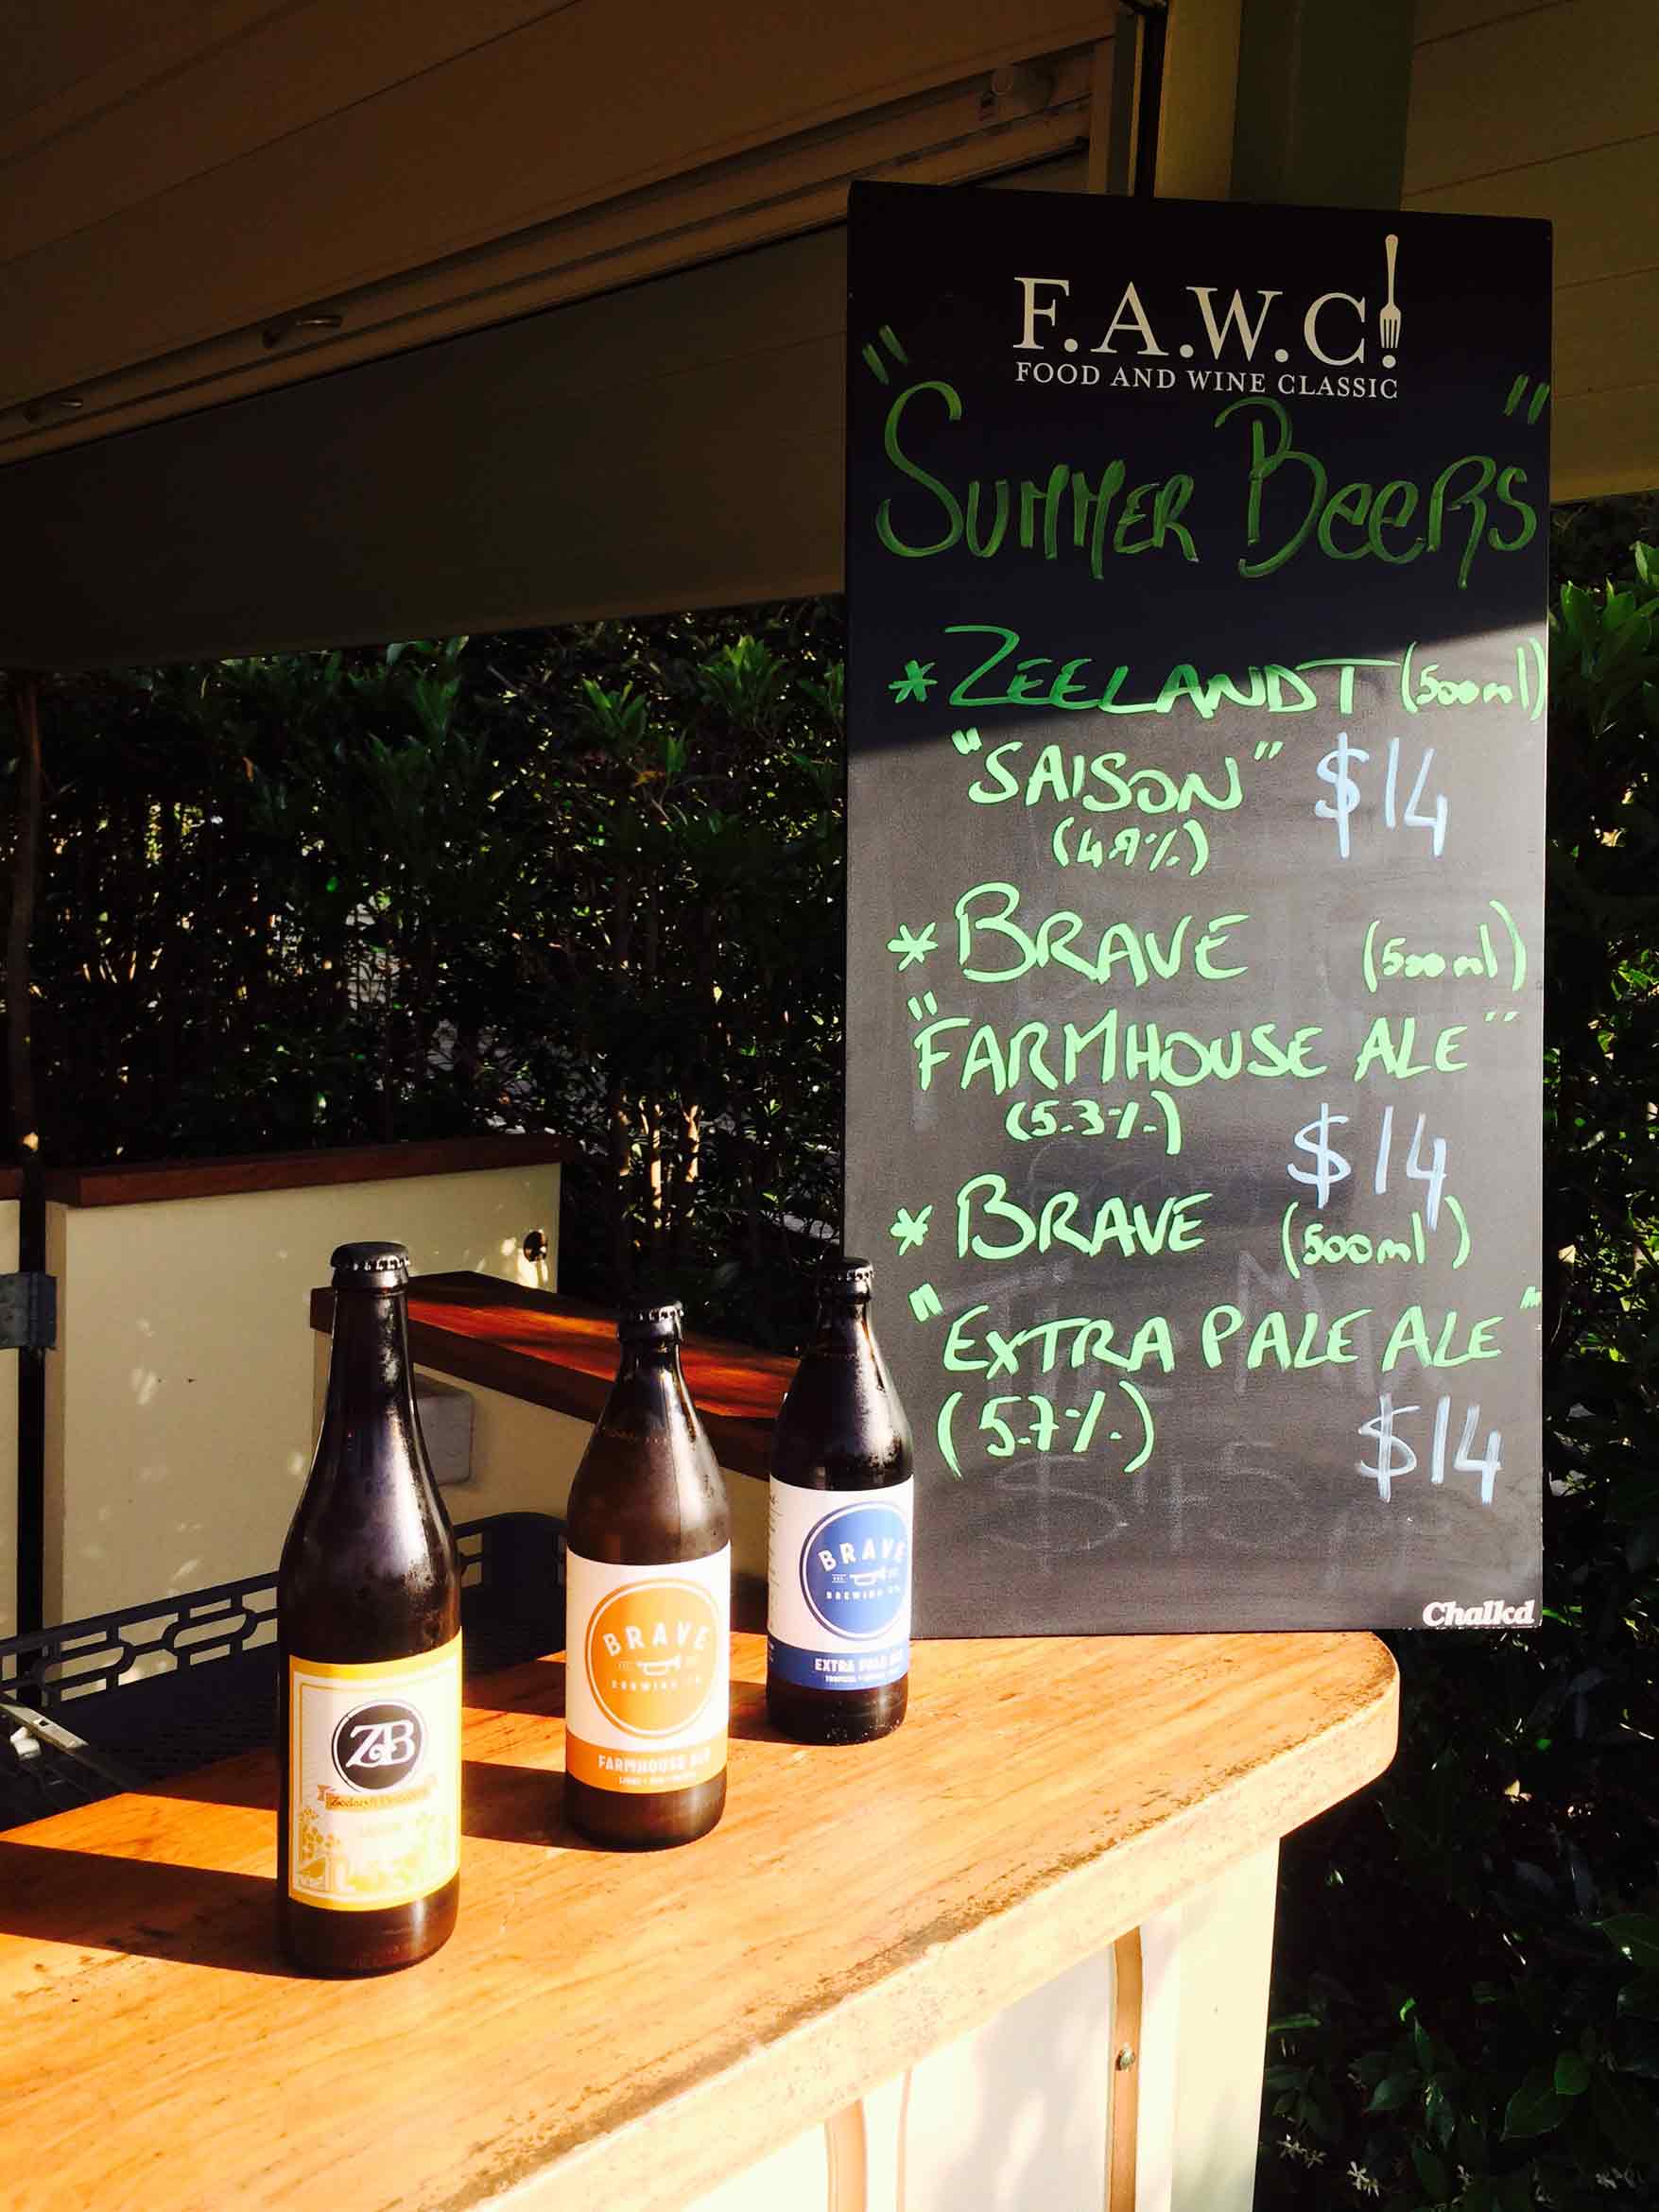 F.A.W.C!
FOOD AND WINE CLASSIC
"SUMMER BEERS"
* ZEELANDT (500ml)
"SAISON" $14
(4.9%)
* BRAVE (500ml)
"FARMHOUSE ALE"
(5.3%)
$14
* BRAVE (500ml)
"EXTRA PALE ALE"
(5.7%) $14
Chalkd
ZB
BRAVE
BREWING CO
FARMHOUSE ALE
BRAVE
BREWING CO
EXTRA PALE ALE